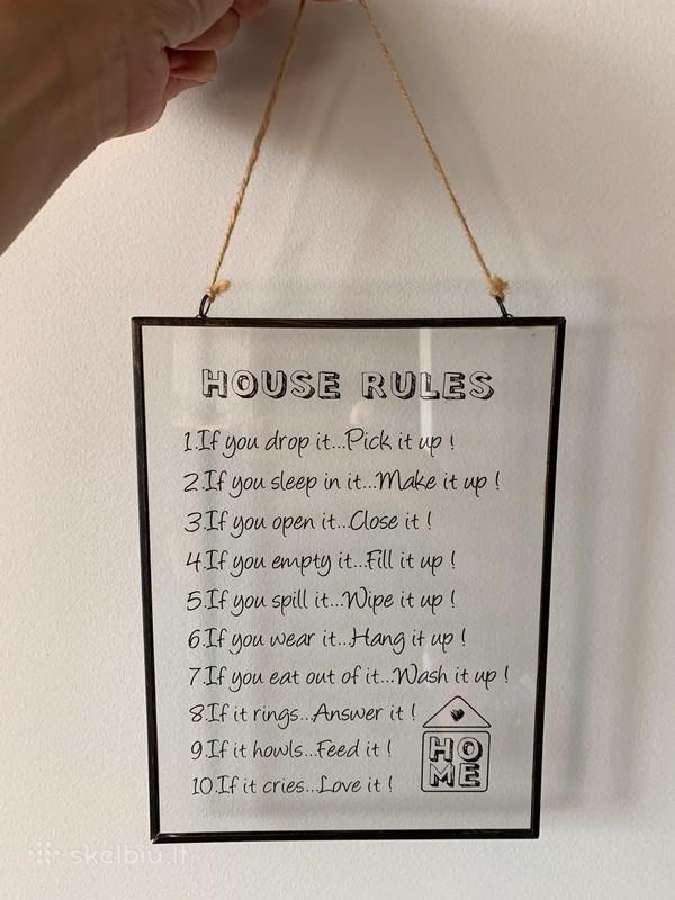 HOUSE RULES
1.If you drop it...Pick it up !
2.If you sleep in it...Make it up !
3.If you open it...Close it !
4.If you empty it...Fill it up !
5.If you spill it...Wipe it up !
6.If you wear it...Hang it up !
7.If you eat out of it...Wash it up !
8.If it rings...Answer it !
9.If it howls...Feed it !
10.If it cries...Love it !
HO
ME
skelbiu.lt